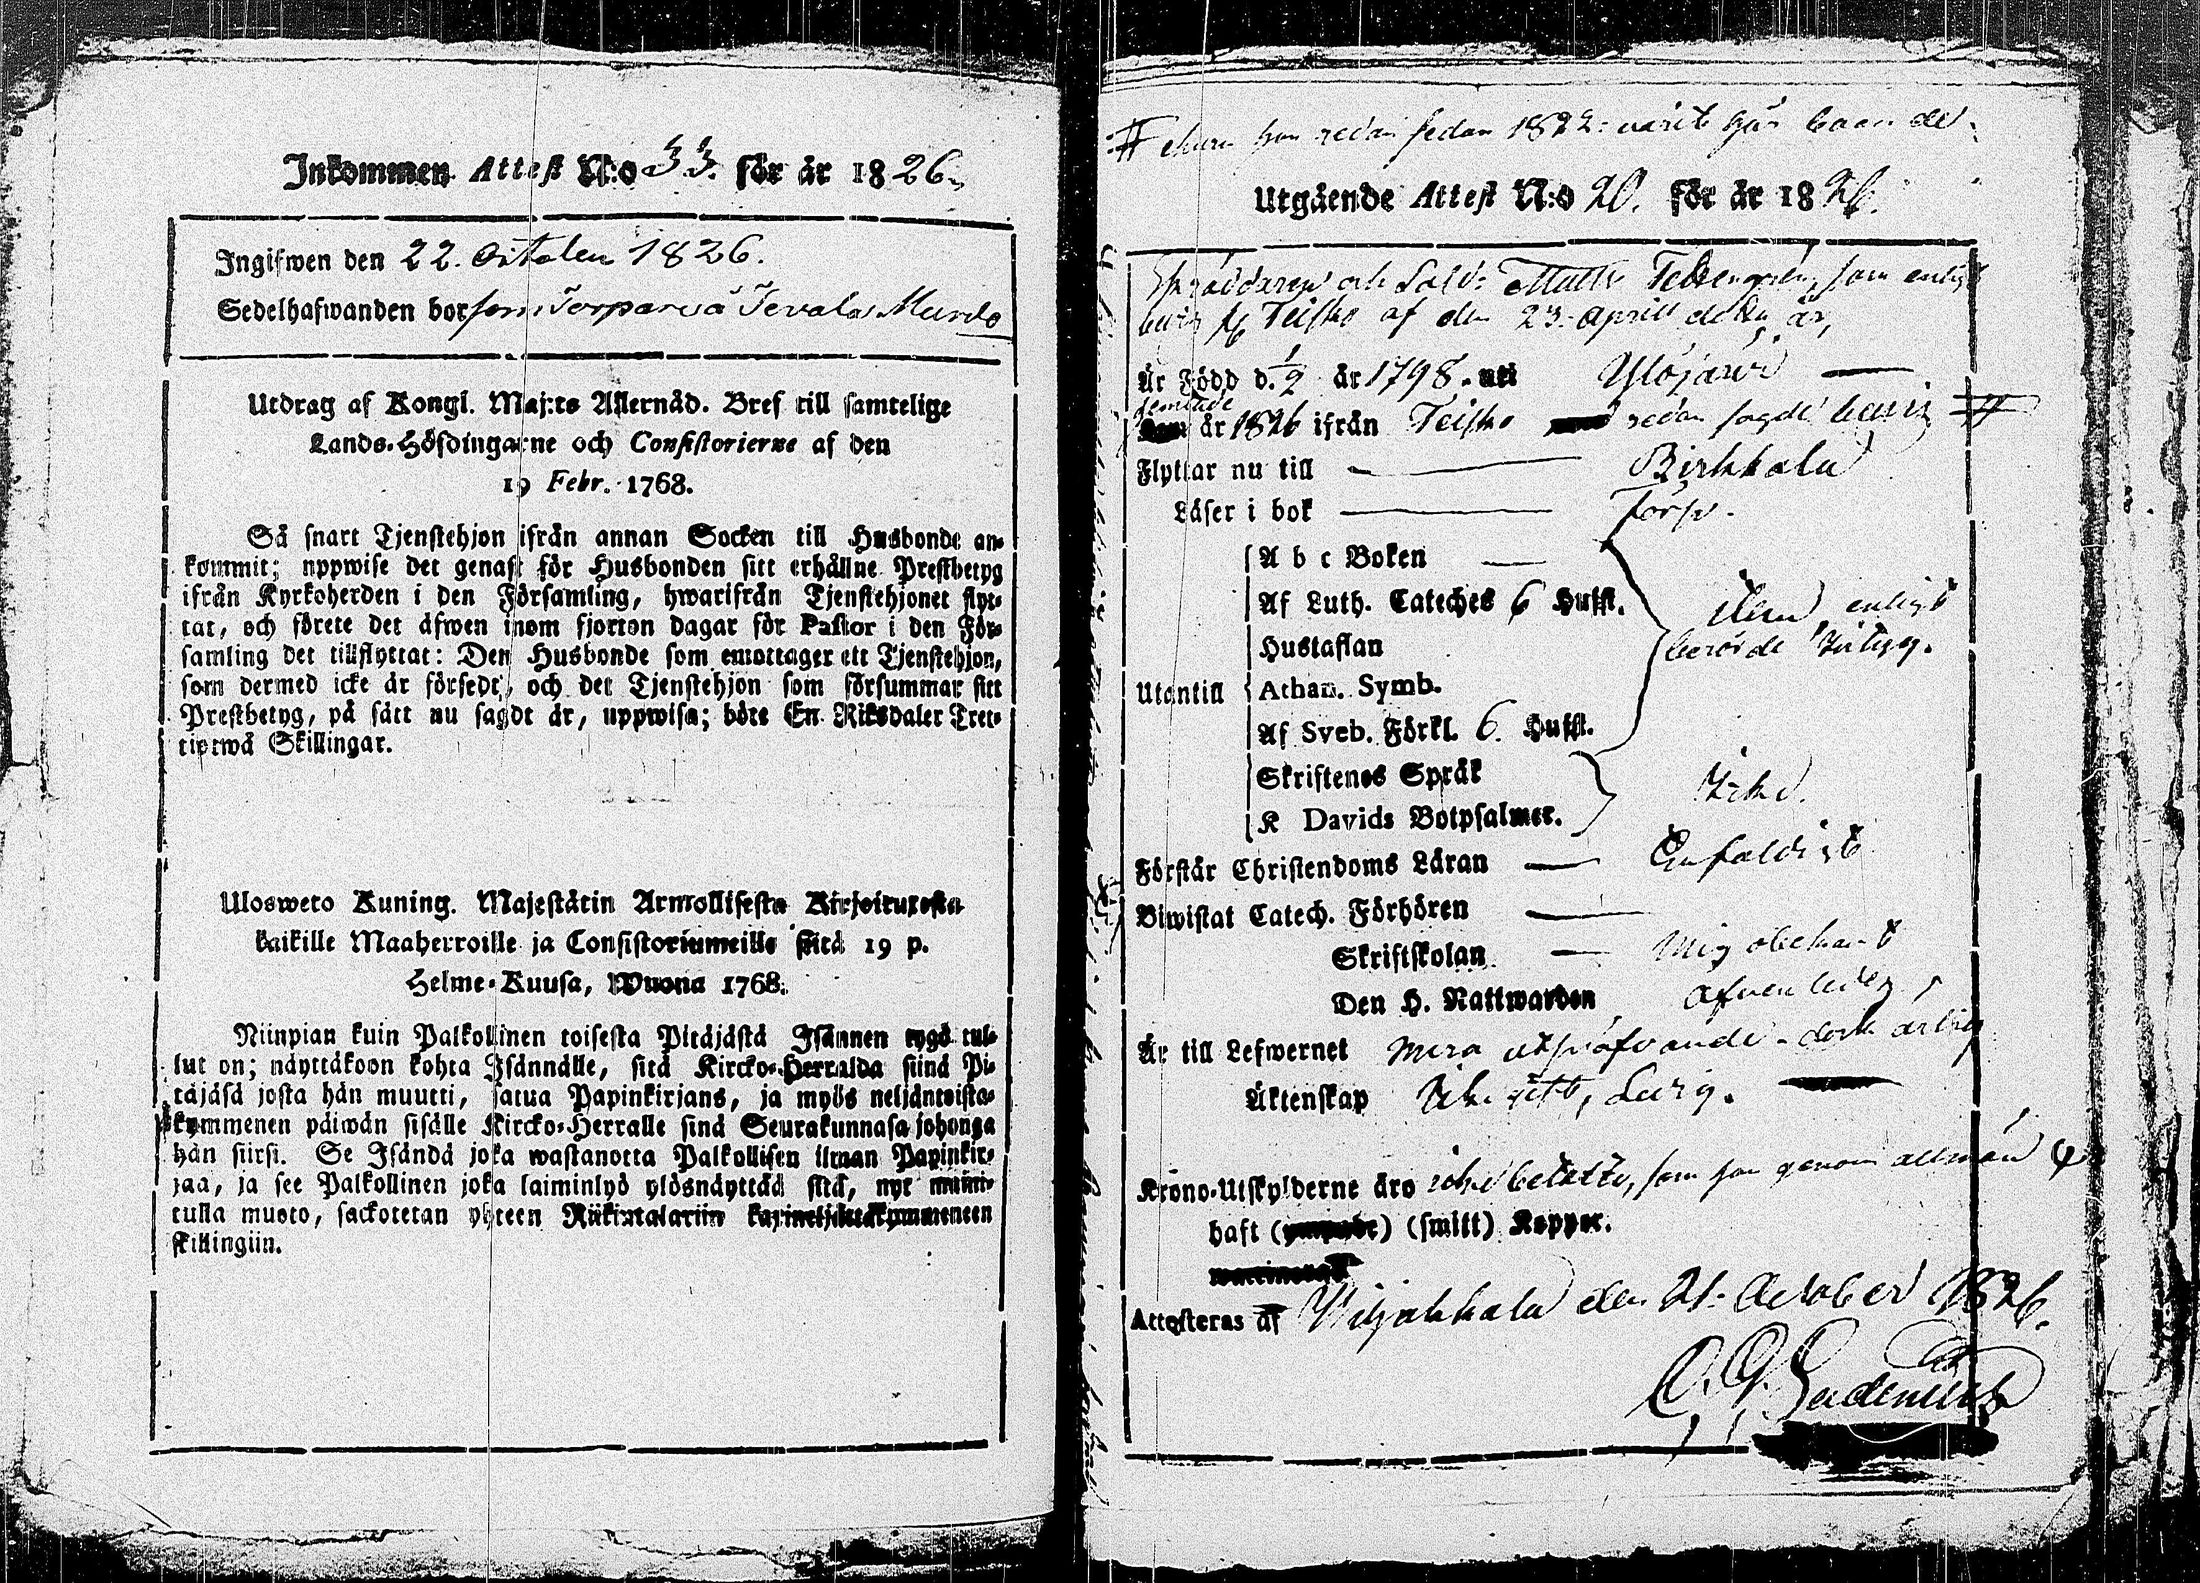 Inkommen Attest N:o 33. för år 1826.
Ingifwen den 22. October 1826.
Sedelhafwanden bor som Torpare å Tevala
Utdrag af Kongl. Maj:ts Allernåd. Bref till samtelige
Lands-Höfdingarne och Consistorierne af den
19 Febr. 1768.
Så snart Tjenstehjon ifrån annan Socken till Husbonde an-
kommit; uppwise det genast för Husbonden sitt erhållne Prestbetyg
ifrån Kyrkoherden i den Församling, hwarifrån Tjenstehjonet flyt-
tat, och förete det äfwen inom fjorton dagar för Pastor i den För-
samling det tillflyttat: Den Husbonde som emottager ett Tjenstehjon,
som dermed icke är försedt, och det Tjenstehjon som försummar sitt
Prestbetyg, på sätt nu sagdt är, uppwisa; böte En Riksdaler Tret-
tiotwå Skillingar.
Ulosweto Kuning. Majestätin Armollisesta Kirjoituxesta
kaikille Maaherroille ja Consistoriumeille siitä 19 p.
Helme-Kuusa, Wuona 1768.
Niinpian kuin Palkollinen toisesta Pitäjästä Isännen tygö tul-
lut on; näyttäkoon kohta Isännälle, sitä Kircko-Herralda siinä Pi-
täjäsä josta hän muutti, saatua Papinkirjans, ja myös neljäntoista-
kymmenen päiwän sisälle Kircko-Herralle sinä Seurakunnasa johonga
hän siirsi. Se Isändä joka wastanotta Palkollisen ilman Papinkir-
jaa, ja see Palkollinen joka laiminlyö ylösnäyttää sitä, nyt maini-
tulla muoto, sackotetan yhteen Riikintalariin
skillingiin.
# ehuru han redan sedan 1822: varit här boende
Utgående Attest N:o 20. för år 1826.
och Sold: Matts som enligt
bevis fr. Teisko af den 23. April detta år,
Är Född d. 1/9 år 1798. uti Ylöjärvi
år 1826 ifrån Teisko redan sagde bevis #
Flyttar nu till Birkkala
Läser i bok Försv.
Utantill
A b c Boken
Af Luth. Cateches 6 Hufst.
Hustaflan
Athan. Symb.
Af Sveb. Förkl. 6. Hufst.
även enligt
berörde betyg.
Skriftenes Språk
K Davids Botpsalmer.
Icke.
Förstår Christendoms Läran Enfaldigt
Biwistat Catech. Förhören
Skriftskolan Mig obekant
Den H. Nattwarden Äfven ledes,
Är till Lefwernet mera dock ärlig
Äktenskap Icke gift, Ledig.
Krono-Utskylderne äro icke betalte, som han genom allmän
haft () (smitt) Koppor.
Attesteras af Wiljakkala den 21. October 1826.